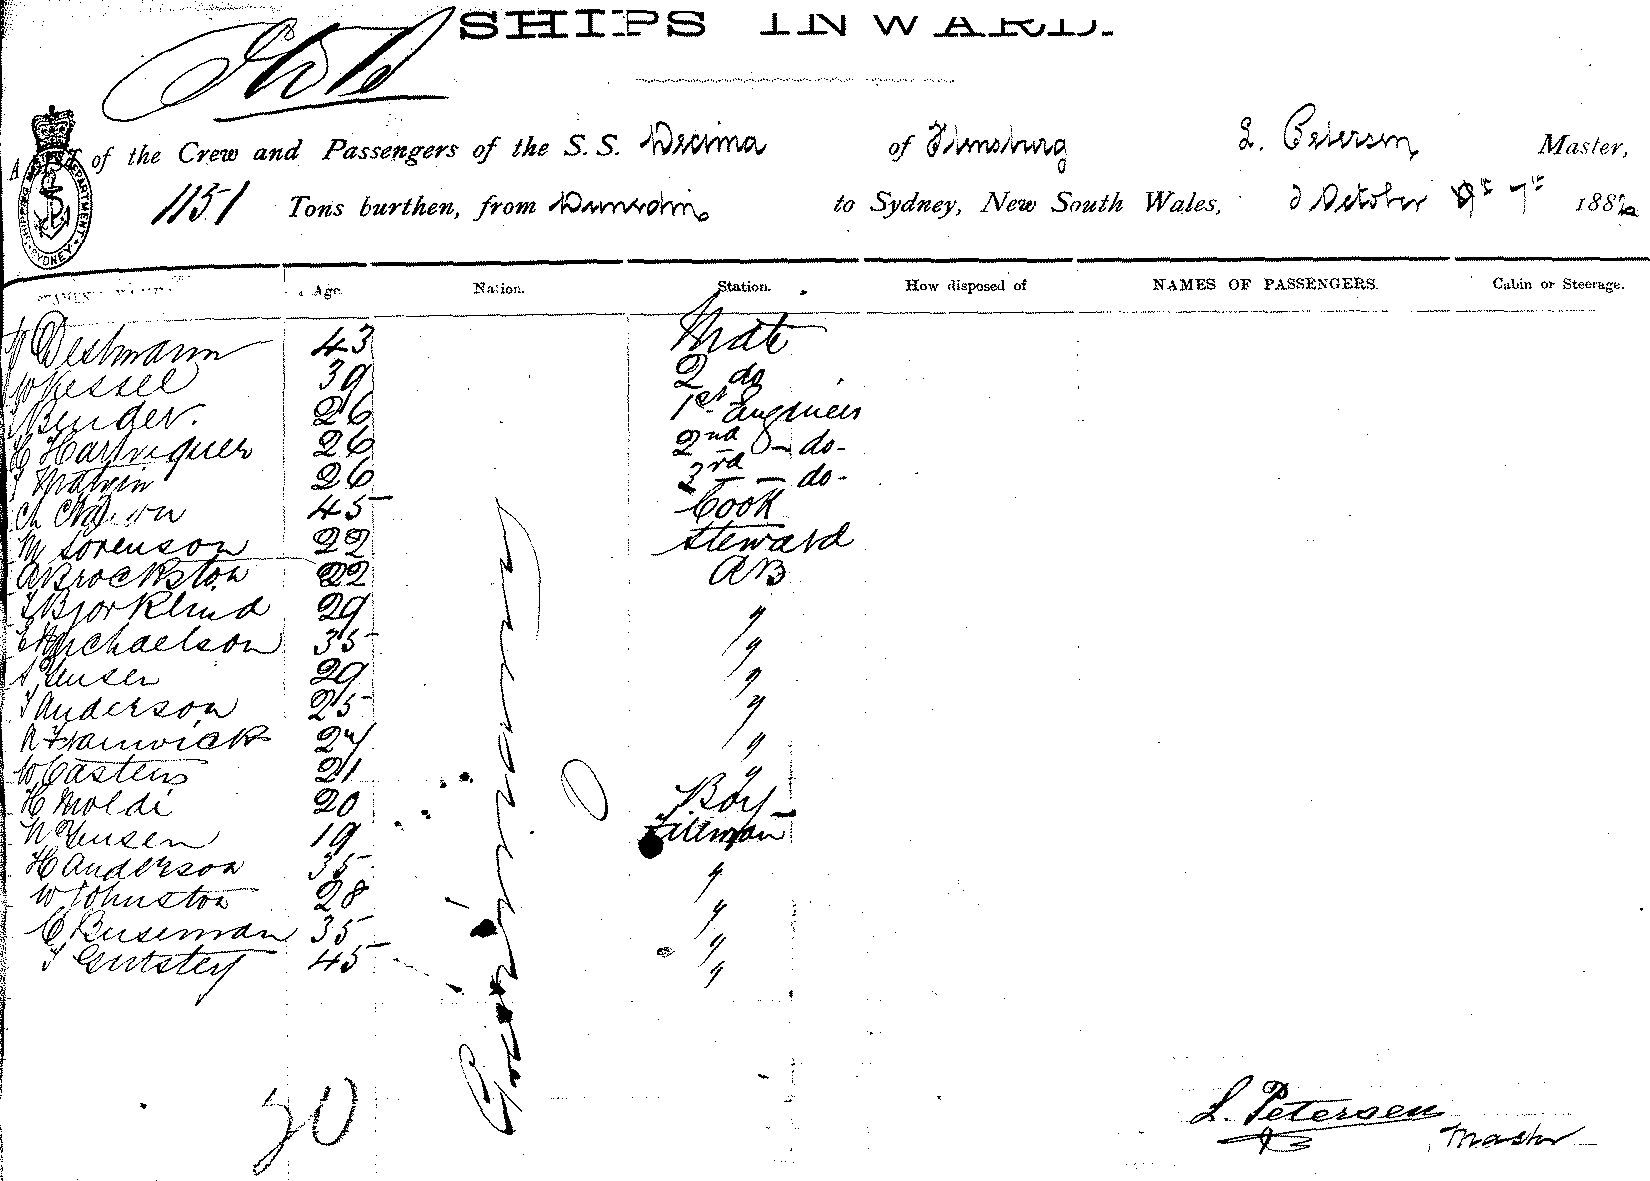 SHIPS INWARD.
A LIST of the Crew and Passengers of the S.S. Decima of Flensburg L. Petersen Master,
1151 Tons burthen, from Dunedin to Sydney, New South Wales, October 7th 188
SHIPPING DEPARTMENT SYDNEY
Age. Nation. Station. How disposed of NAMES OF PASSENGERS. Cabin or Steerage.
Destmann 43 Mate
W Kessel 39 2 do
Bender. 26 1st Engineer
26 2nd - do -
26 3rd - - do -
45 Cook
Sorenson 22 Steward
Brockston 22 AB
Bjorklund 29 "
Michaelson 35 "
Jensen 29 "
Anderson 25 "
27 "
W Castens 21 "
H Moldi 20 Boy
N Jensen 19 Fireman
H Anderson 35 "
W Johnston 28 "
C Buseman 35 "
45 "
German
20
L. Petersen
Master